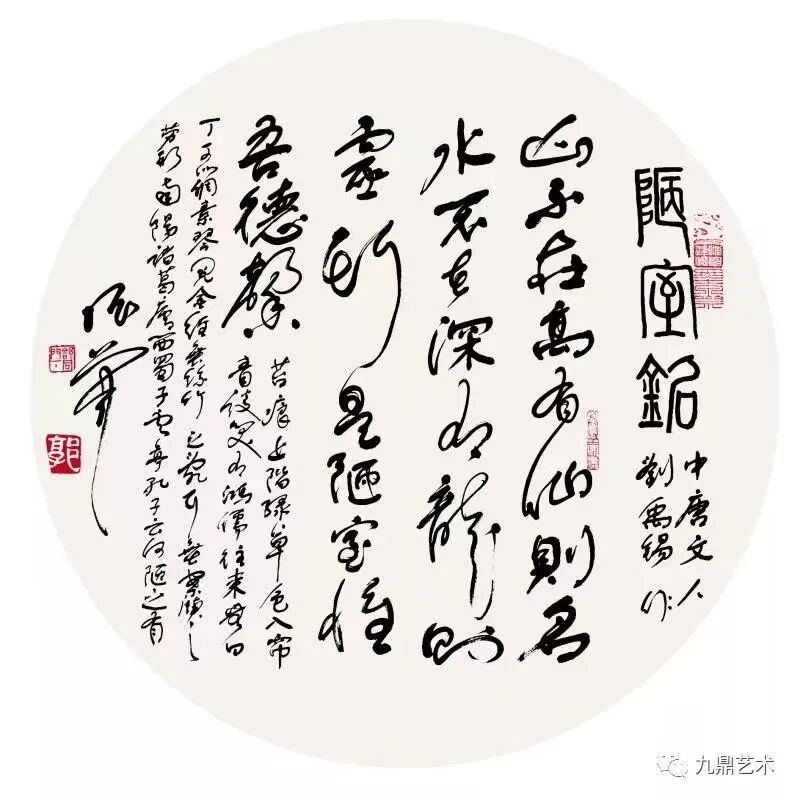 陋室銘
中唐文人
劉禹錫作
山不在高有仙則名
水不在深有龍則
靈斯是陋室惟
吾德馨
苔痕上階綠草色入帘
青談笑有鴻儒往來無白
丁可以調素琴閱金經無絲竹之亂耳無案牘之
勞形南陽諸葛廬西蜀子雲亭孔子云何陋之有
郭
九鼎艺术